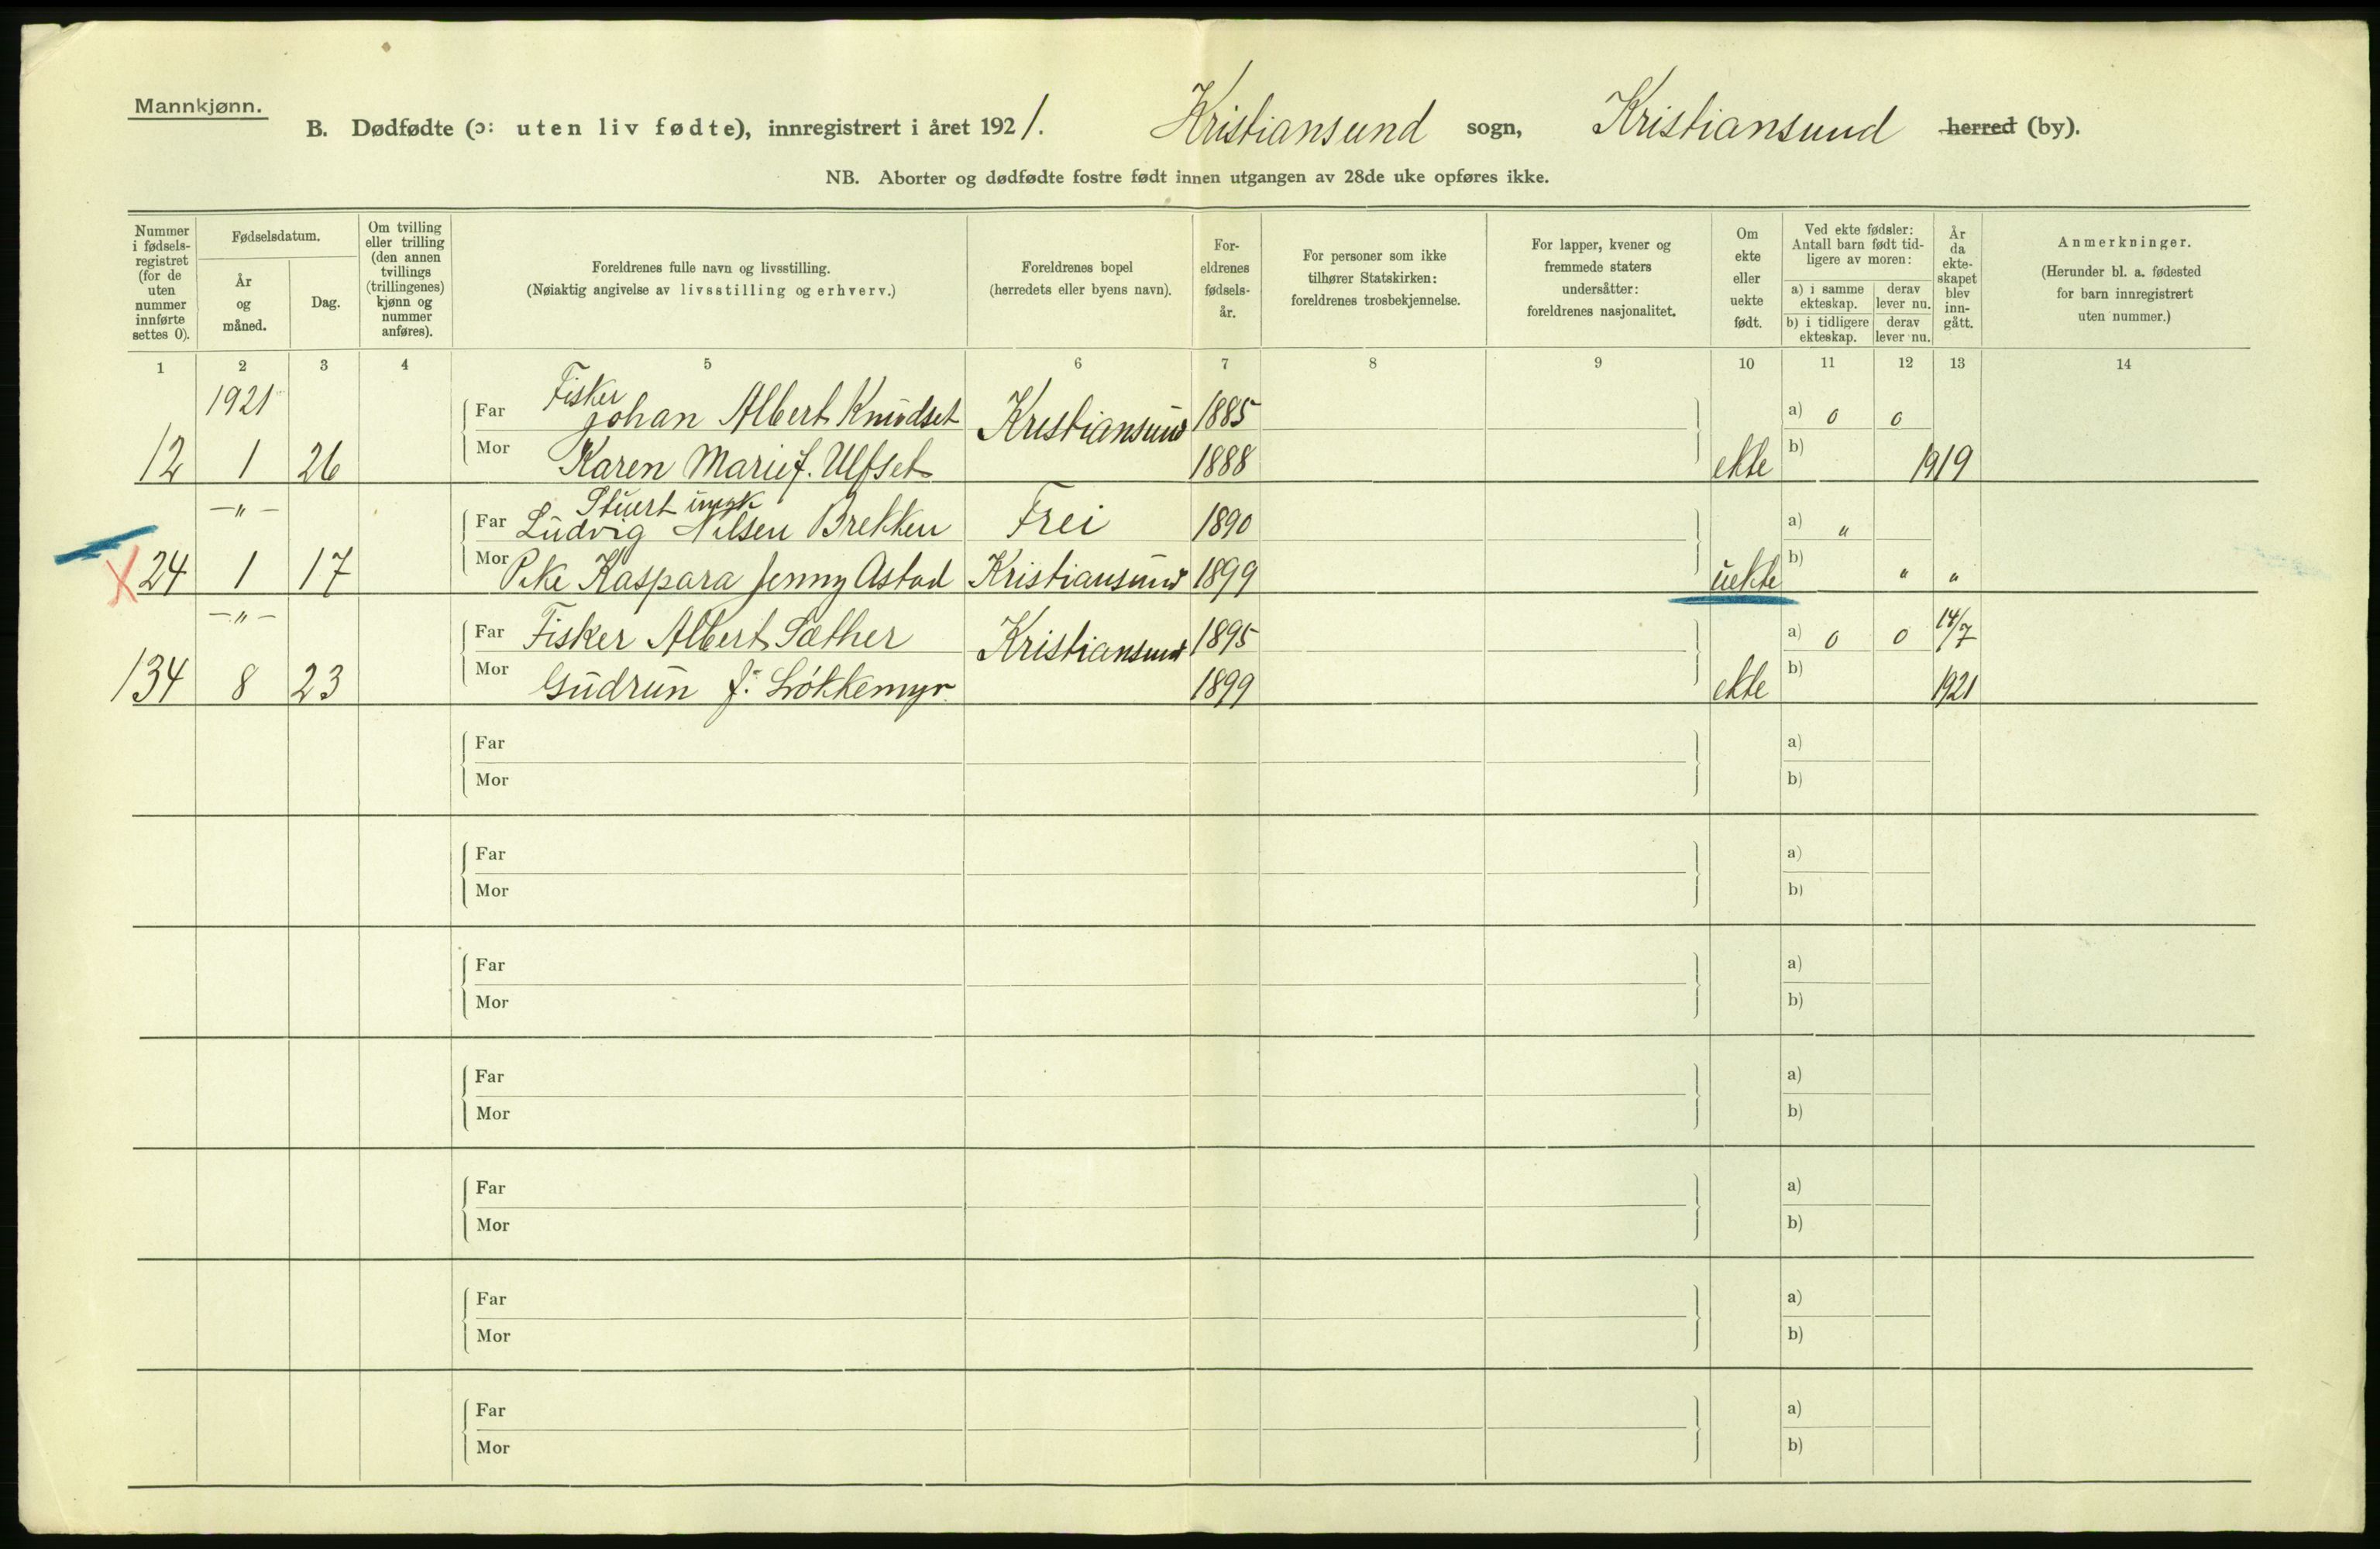 Mannkjønn.
B. Dødfødte (ɔ: uten liv fødte), innregistrert i året 1921. Kristiansund sogn, Kristiansund herred (by).
NB. Aborter og dødfødte fostre født innen utgangen av 28de uke opføres ikke.
Nummer i fødsels-registret (for de uten nummer innførte settes 0).
Fødselsdatum.
År og måned.
Dag.
Om tvilling eller trilling (den annen tvillings (trillingenes) kjønn og nummer anføres).
Foreldrenes fulle navn og livsstilling.
(Nøiaktig angivelse av livsstilling og erhverv.)
Foreldrenes bopel
(herredets eller byens navn).
For-eldrenes fødsels-år.
For personer som ikke tilhører Statskirken: foreldrenes trosbekjennelse.
For lapper, kvener og fremmede staters undersåtter: foreldrenes nasjonalitet.
Om ekte eller uekte født.
Ved ekte fødsler: Antall barn født tid-ligere av moren:
a) i samme ekteskap.
derav lever nu.
b) i tidligere ekteskap.
derav lever nu.
År da ekte-skapet blev inn-gått.
Anmerkninger.
(Herunder bl. a. fødested for barn innregistrert uten nummer.)
1 2 3 4 5 6 7 8 9 10 11 12 13 14
1921 Fisker
Far Johan Albert Knudset Kristiansund 1885 a) 0 0
12 1 26 Mor Karen Marie f. Ulfset 1888 ekte b) 1919
—"— Stuert
Far Ludvig Nilsen Brekken Frei 1890 a) "
X 24 1 17 Mor Pike Kaspara Jenny Astad Kristiansund 1899 uekte b) " "
—"— Far Fisker Albert Sæther Kristiansund 1895 a) 0 0 14/7
134 8 23 Mor Gudrun f. Løkkemyr 1899 ekte b) 1921
Far a)
Mor b)
Far a)
Mor b)
Far a)
Mor b)
Far a)
Mor b)
Far a)
Mor b)
Far a)
Mor b)
Far a)
Mor b)